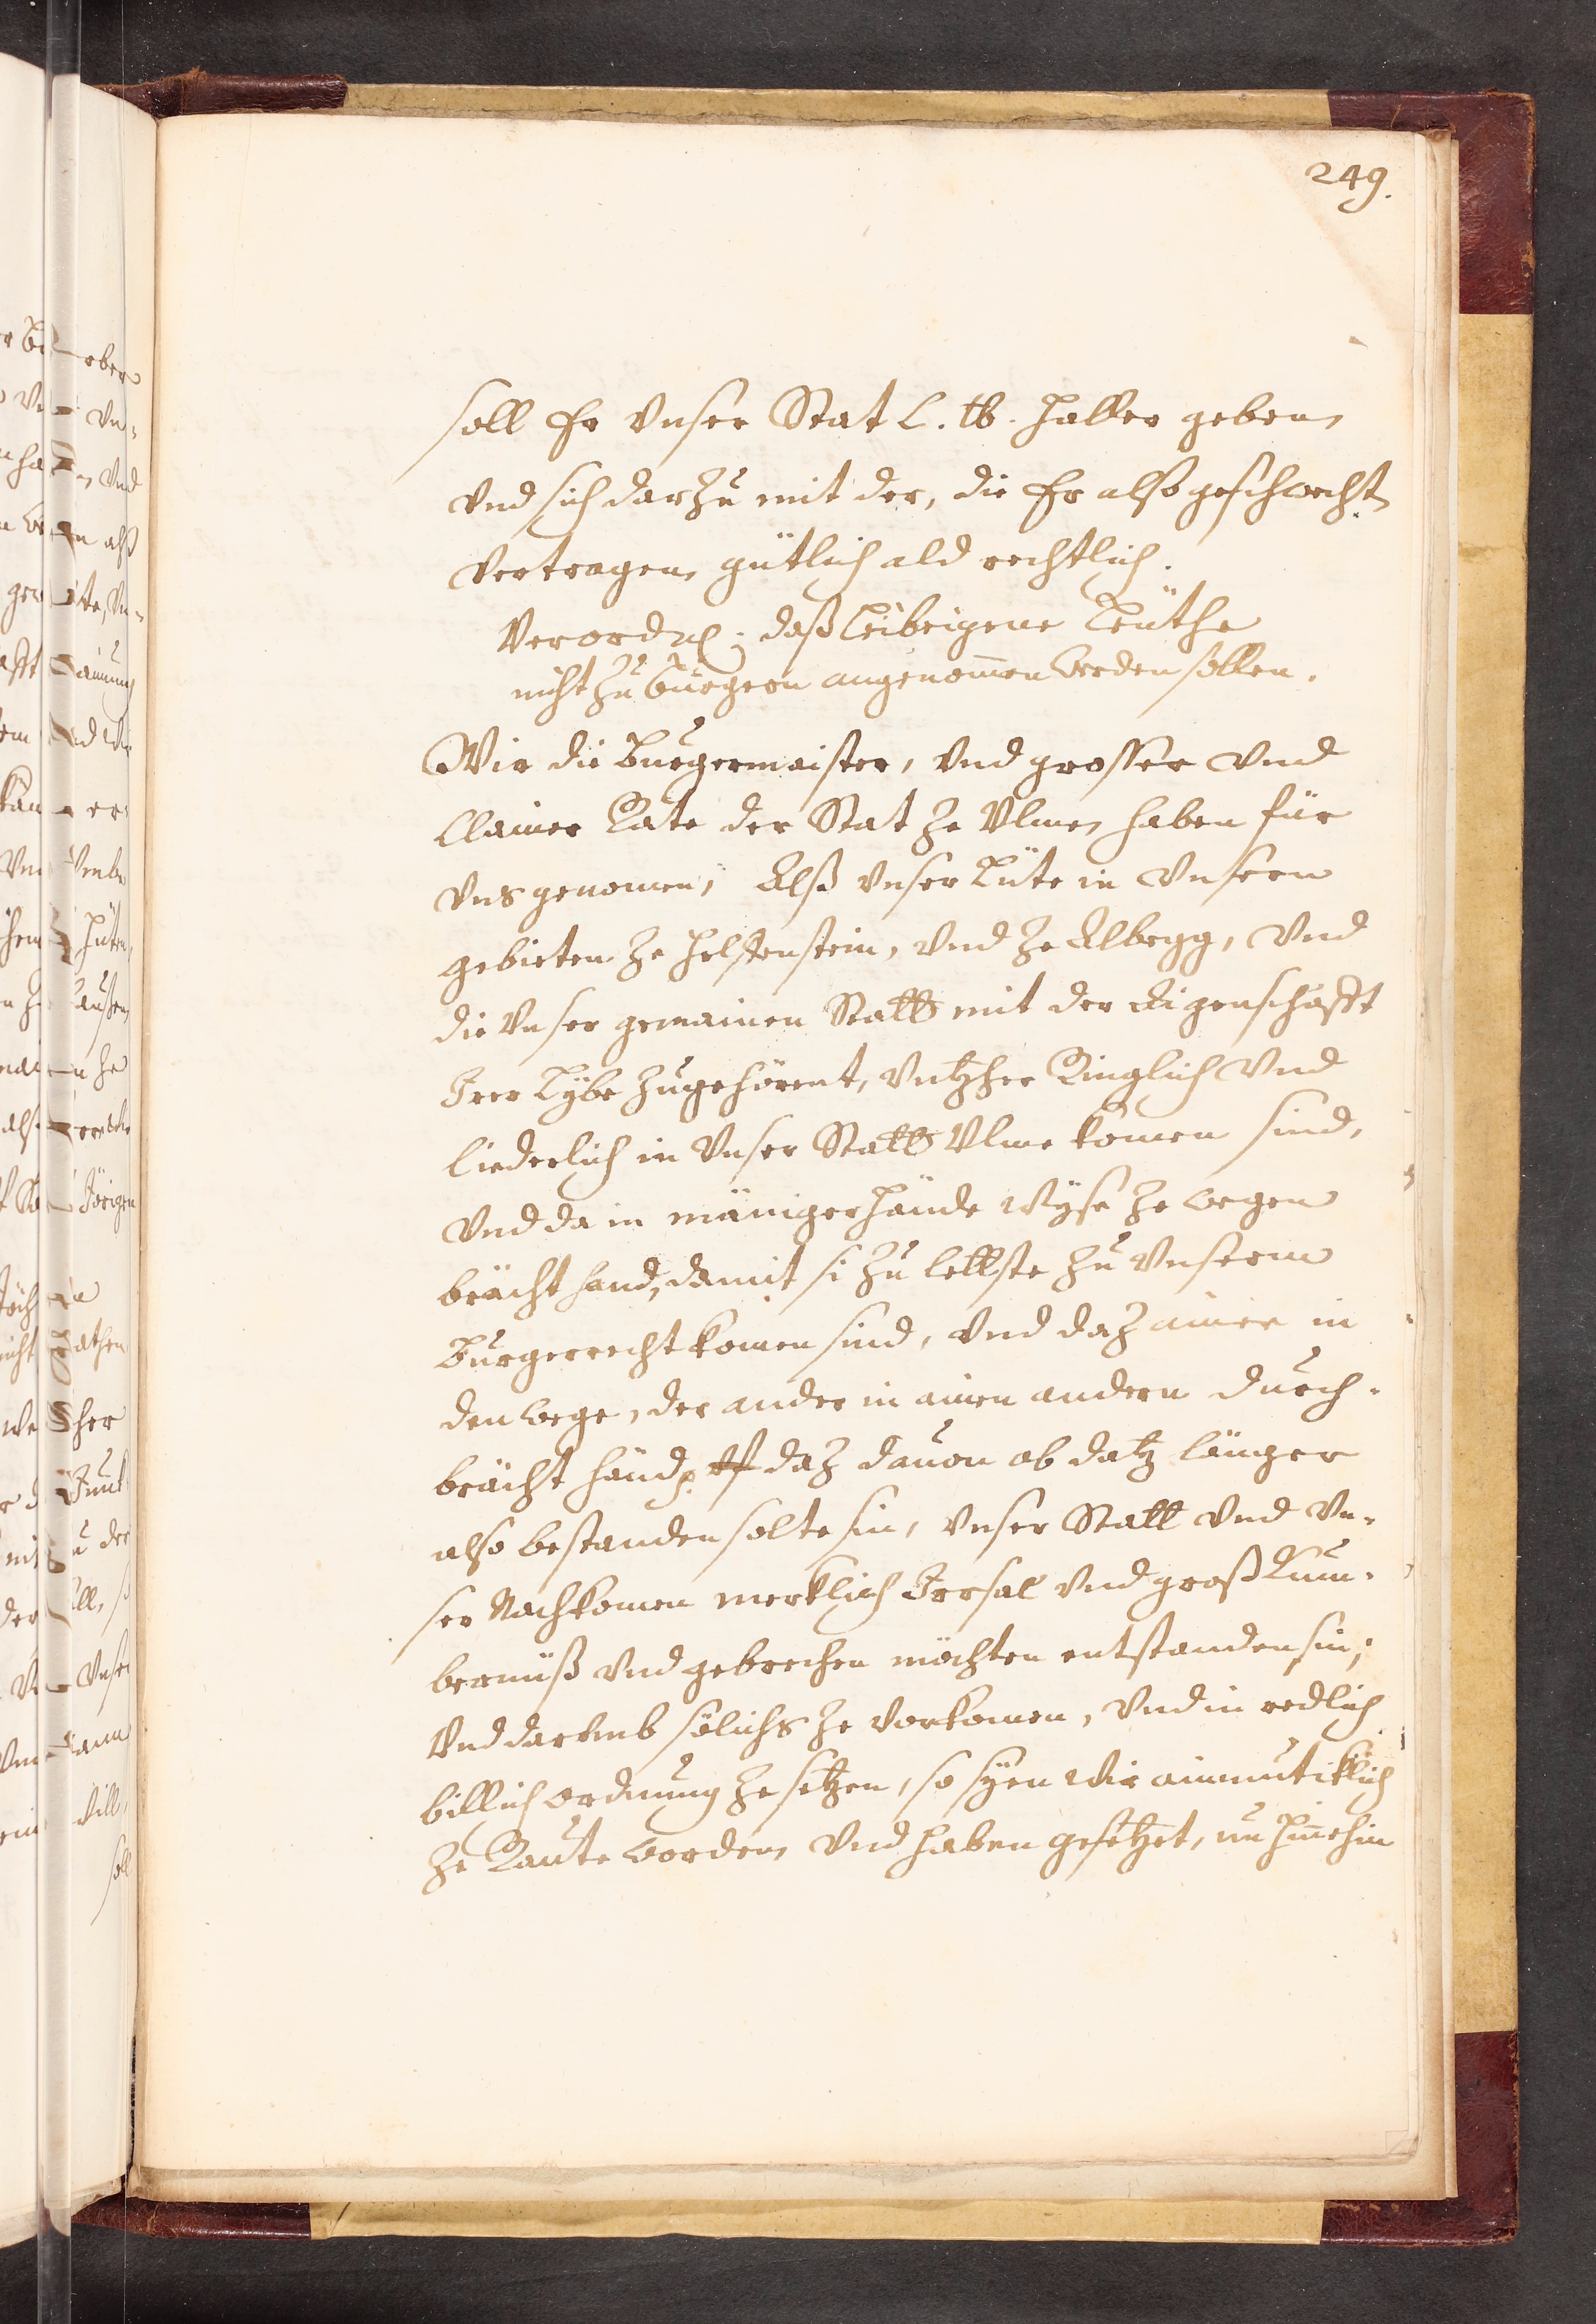 249.
soll Er vnser Stat L. lb. haller geben,
vnd sich darzu mit der, die Er also geschwecht,
vertragen, gütlich ald rechtlich.
Verordn: daß Leibeigene Leuthe
nicht zu burgern angenom̄en werden sollen.
Wir die Burgermaister, vnd grosser vnd
Clainer Rate der Stat ze Vlme, haben für
vns genomen, Alß vnser Lüte in vnsern
gebieten ze Helfenstein, vnd ze Albegg, vnd
die vnser gemainen Statt mit der Aigenschafft
Irer Lybe zugehörent, vntzher Ringlich vnd
liederlich in vnser Statt Vlme komen sind,
vnd da in mänigerhande wyse ze wegen
bracht hand, damit si zu letste zu vnserm
Burgerrecht komen sind, vnd daz ainer in
den wege, der ander in ainen andern durch-
bracht händ, daz dauon ob datz länger
also bestanden solte sin, vnser Statt vnd vn-
ser Nachkomen merklich Irrsal vnd groß Kum-
bernüß vnd gebrechen möchten entstanden sin;
Vnd darumb sölichs ze vorkomen, vnd in redlich
billich ordnung ze setzen, so syen wir ainmutiklich
ze Raute worden, vnd haben gesetzet, nu hinnehin